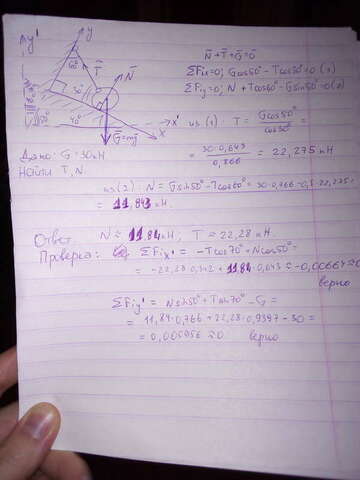 y'
y
60°
T̄
N̄
30°
40°
x'
x
Ḡ=mḡ
N̄+T̄+Ḡ=0̄
ΣFix=0; Gcos50°-Tcos30°=0 (1)
ΣFiy=0; N+Tcos60°-Gsin50°=0 (2)
из (1) T = Gcos50°/cos30° =
= 30·0,643/0,866 = 22,275 кН
Дано: G=30кН
Найти T, N.
из(2) N=Gsin50°-Tcos60°=30·0,766-0,5·22,275=
= 11,843 кН.
Ответ N=11,84 кН, T=22,28 кН
Проверка: ΣFix' = -Tcos70°+Ncos50°=
= -22,28·0,342+11,84·0,643=-0,00664≈0
верно
ΣFiy' = Nsin50°+Tsin70°-G=
= 11,84·0,766+22,28·0,9397-30=
= 0,005956≈0 верно